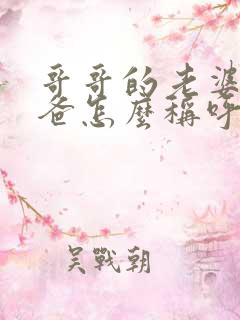 哥哥的老婆
爸怎麼稱呼
吳戰朝